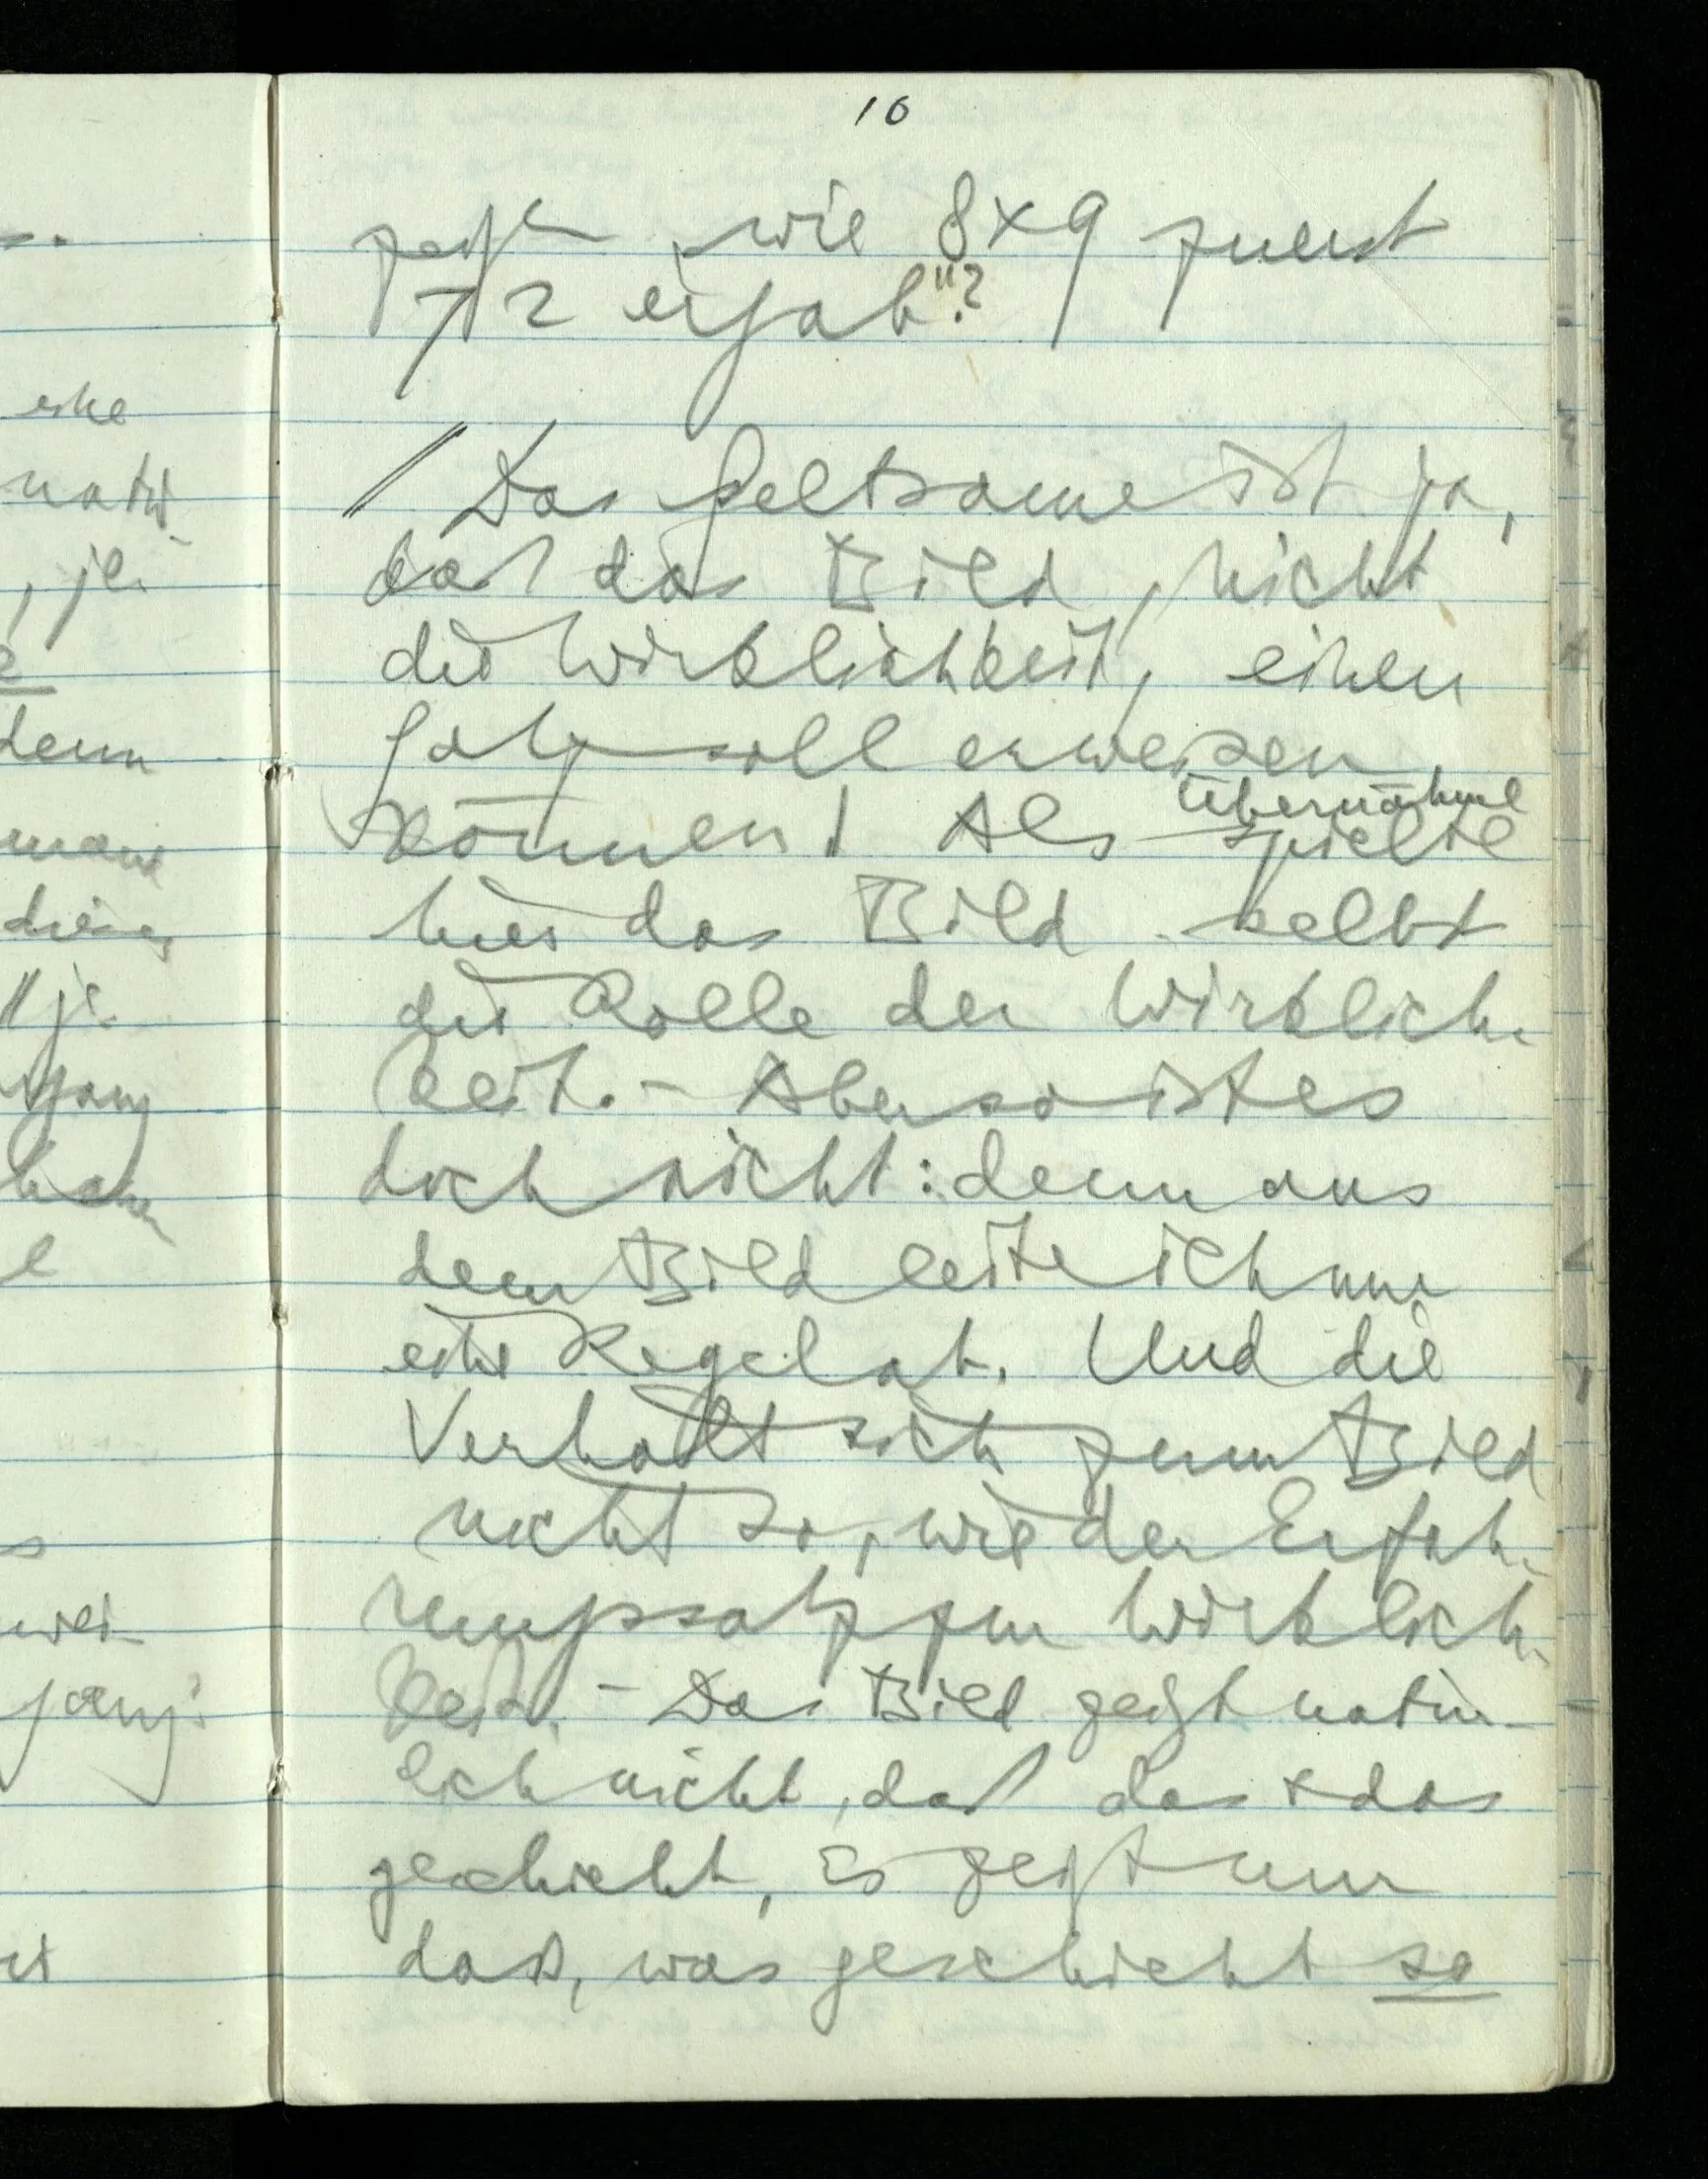 10
zeigen, wie 8×9 zuerst
72 ergab"?
/ Das Seltsame ist ja,
daß das Bild, nicht
die Wirklichkeit, einen
Satz soll erweisen
können! Als spielte
übernähme
hier das Bild selbst
die Rolle der Wirklich-
keit. – Aber so ist es
doch nicht: denn aus
dem Bild leite ich nur
eine Regel ab. Und die
Verhält sich zum Bild
nicht so, wie der Erfah-
rungssatz zur Wirklich-
keit. – Das Bild zeigt natür-
lich nicht, daß das & das
geschieht, Es zeigt nur
daß, was geschieht so
eine
natür-
denn